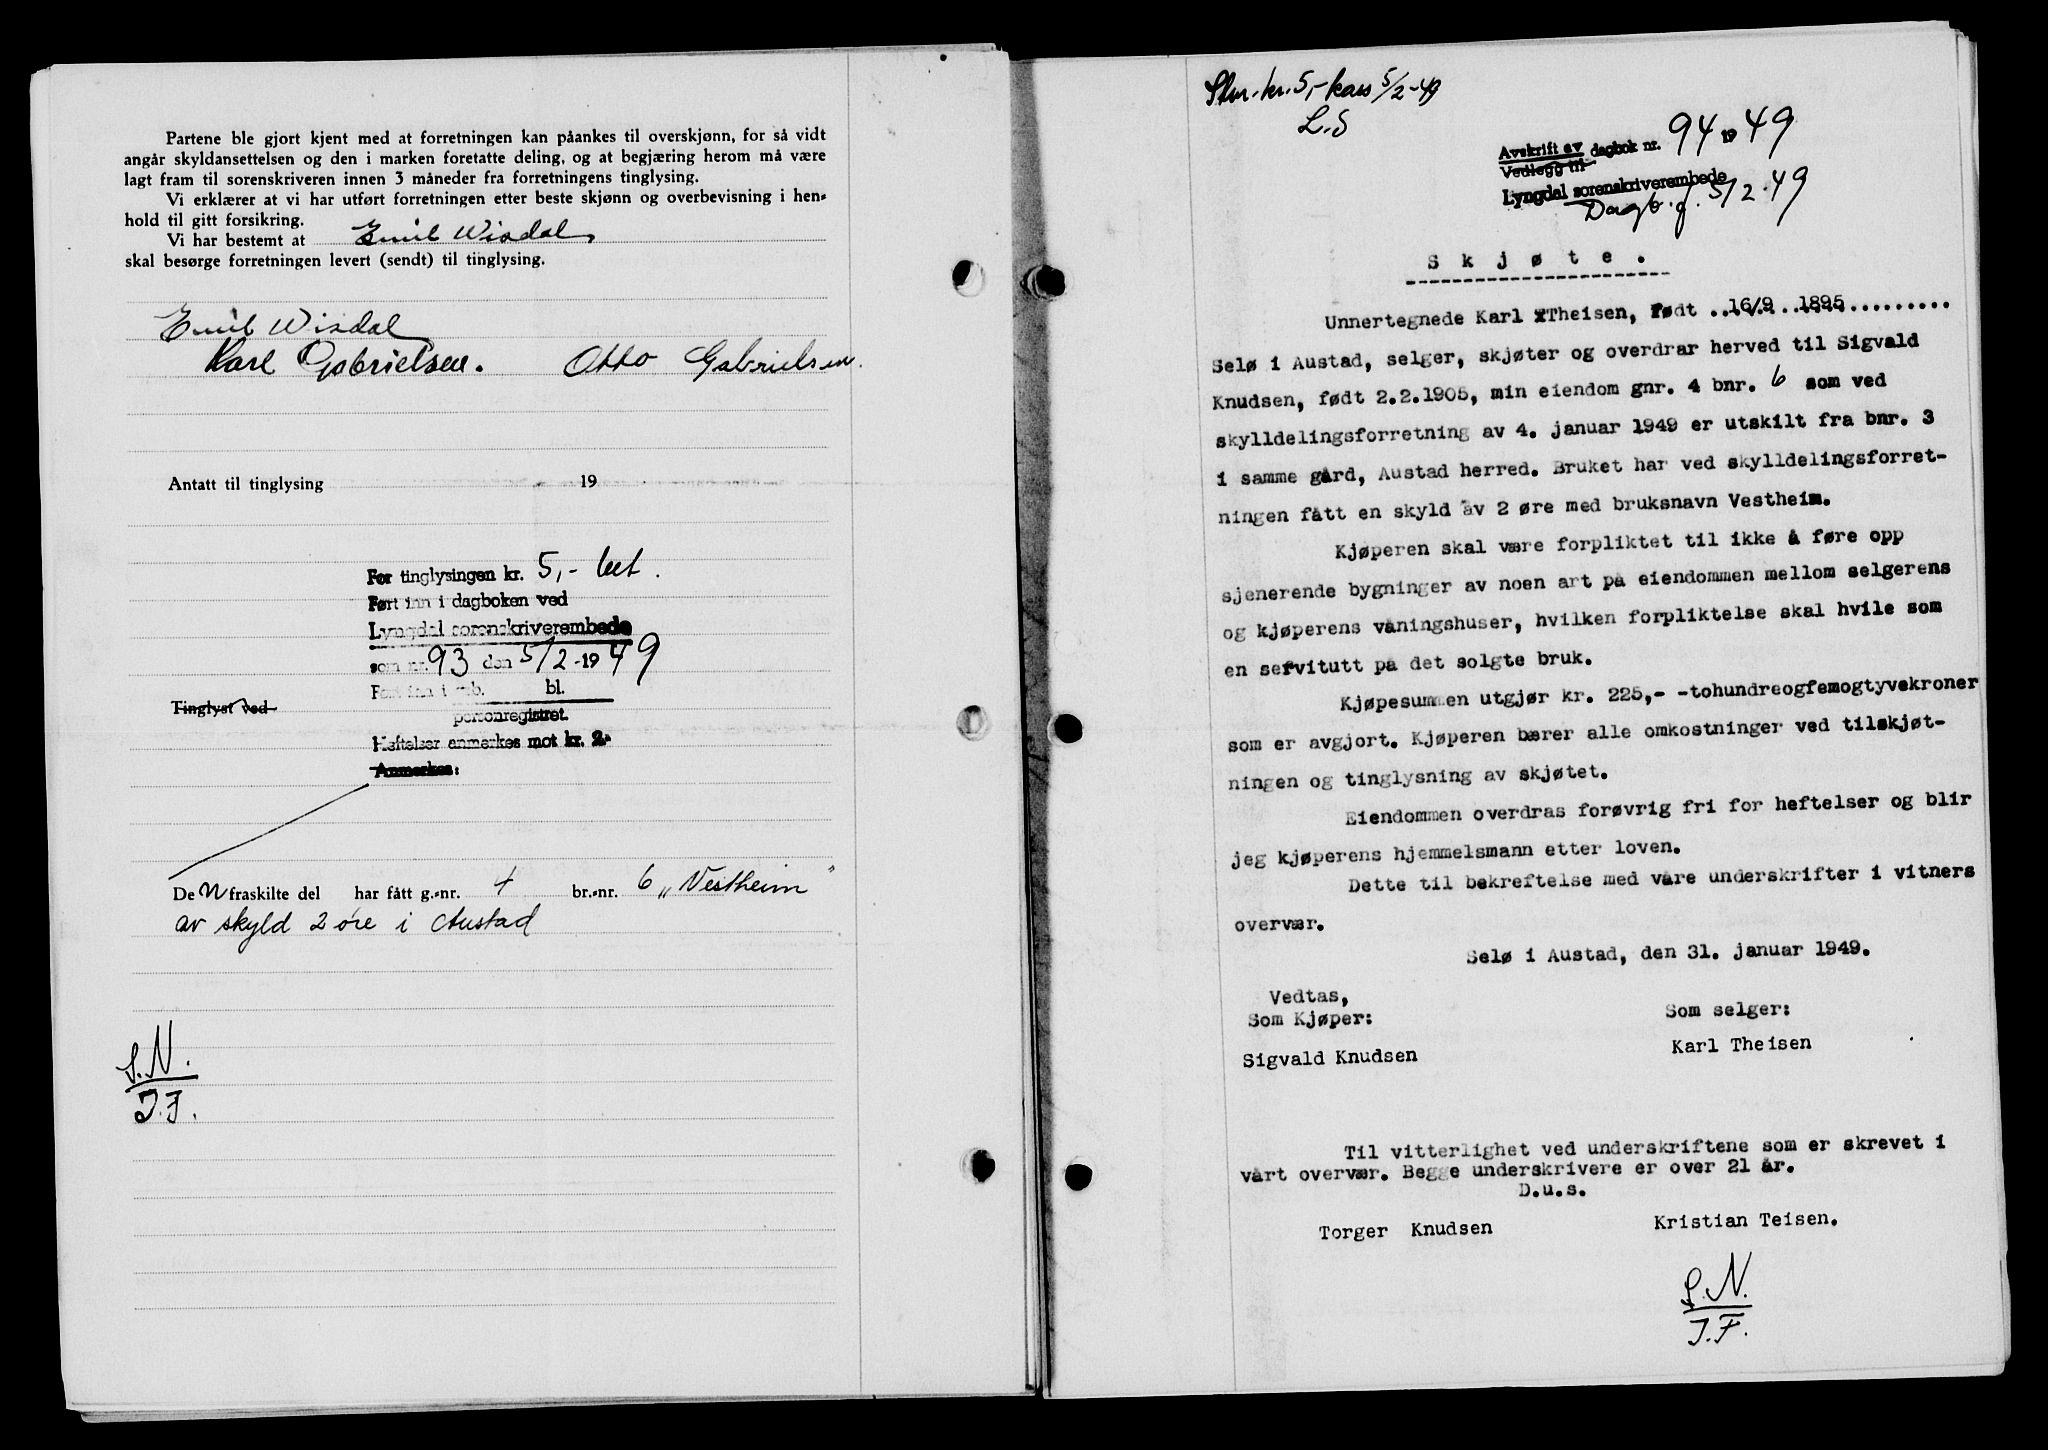 Partene ble gjort kjent med at forretningen kan påankes til overskjønn, for så vidt
angår skyldansettelsen og den i marken foretatte deling, og at begjæring herom må være
lagt fram til sorenskriveren innen 3 måneder fra forretningens tinglysing.
Vi erklærer at vi har utført forretningen etter beste skjønn og overbevisning i hen-
hold til gitt forsikring.
Vi har bestemt at Emil Wisdal
skal besørge forretningen levert (sendt) til tinglysing.
Emil Wisdal
Karl Gabrielsen. Otto Gabrielsen.
Antatt til tinglysing 19
For tinglysingen kr. 5,- bet.
Ført inn i dagboken ved
Lyngdal sorenskriverembede
som nr. 93 den 5/2-1949
Ført inn i pb. bl.
Tinglyst ved
personregistret.
Heftelser anmerkes mot kr. 2.-
Anmerkes:
De N fraskilte del har fått g.-nr. 4 br.-nr. 6 „Vestheim"
av skyld 2 øre i Austad
S.N.
J.F.
Stm. kr. 5,- kass 5/2-49
L.S
Avskrift av dagbok nr. 94 1949
Vedlegg til
Lyngdal sorenskriverembede
Dagb.f. 5/2.49
S k j ø t e .
Unnertegnede Karl Theisen, født ..16/9..1895.........
Selø i Austad, selger, skjøter og overdrar herved til Sigvald
Knudsen, født 2.2.1905, min eiendom gnr. 4 bnr. 6 som ved
skylldelingsforretning av 4. januar 1949 er utskilt fra bnr. 3
i samme gård, Austad herred. Bruket har ved skylldelingsforret-
ningen fått en skyld av 2 øre med bruksnavn Vestheim.
Kjøperen skal være forpliktet til ikke å føre opp
sjenerende bygninger av noen art på eiendommen mellom selgerens
og kjøperens våningshuser, hvilken forpliktelse skal hvile som
en servitutt på det solgte bruk.
Kjøpesummen utgjør kr. 225,- -tohundreogfemogtyvekroner
som er avgjort. Kjøperen bærer alle omkostninger ved tilskjøt-
ningen og tinglysning av skjøtet.
Eiendommen overdras forøvrig fri for heftelser og blir
jeg kjøperens hjemmelsmann etter loven.
Dette til bekreftelse med våre underskrifter i vitners
overvær.
Selø i Austad, den 31. januar 1949.
Vedtas,
Som Kjøper: Som selger:
Sigvald Knudsen Karl Theisen
Til vitterlighet ved underskriftene som er skrevet i
vårt overvær. Begge underskrivere er over 21 år.
D.u.s.
Torger Knudsen Kristian Teisen.
S.N.
J.F.